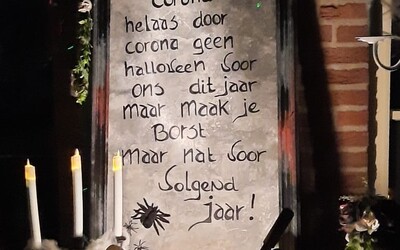 Corona
helaas door
corona geen
halloween voor
ons dit jaar
maar maak je
Borst
maar nat voor
volgend
jaar!